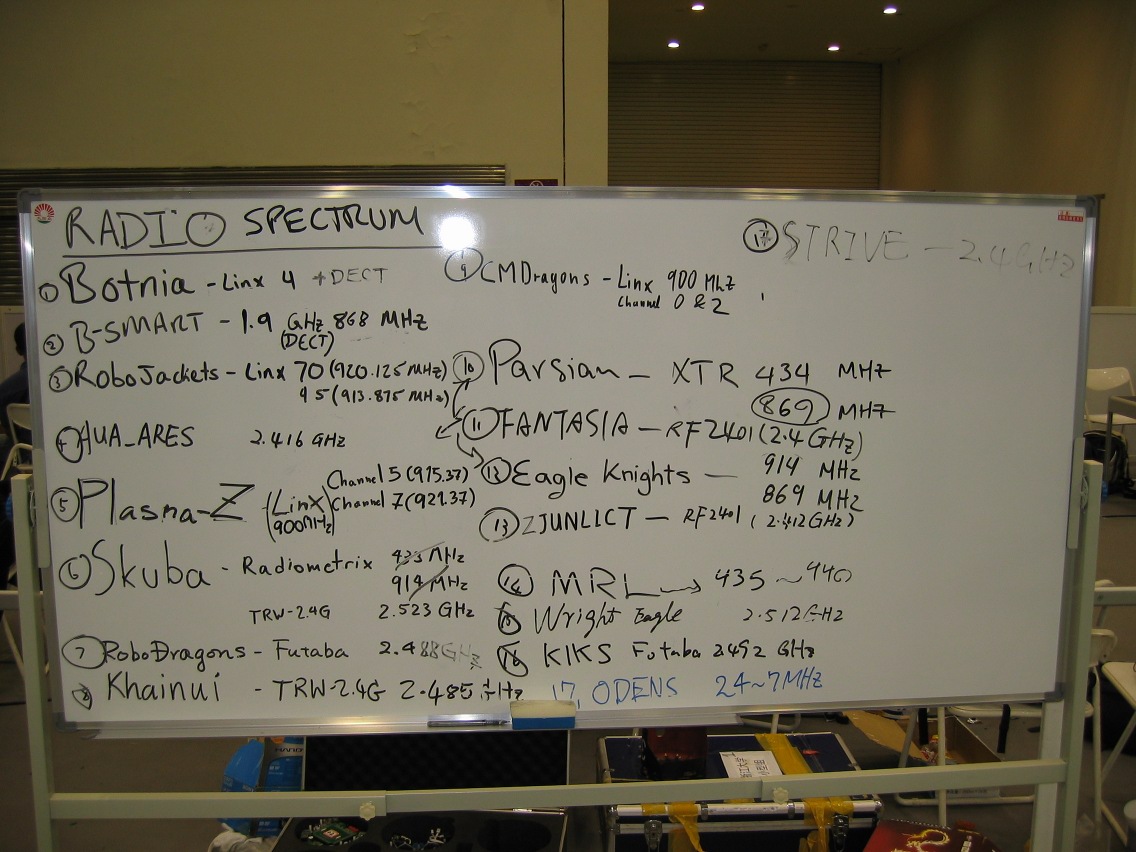 RADIO SPECTRUM
① Botnia - Linx 4 + DECT
② B-SMART - 1.9 GHz 868 MHz
(DECT)
③ RoboJackets - Linx 70 (920.125 MHz)
45 (913.875 MHz)
④ AUA_ARES 2.416 GHz
⑤ Plasma-Z (LinX 900MHz) Channel 5 (915.37)
Channel 7 (921.37)
⑥ Skuba - Radiometrix 433 MHz
914 MHz
TRW-2.4G 2.523 GHz
⑦ RoboDragons - Futaba 2.488GHz
⑧ Khainui - TRW-2.4G 2.485 GHz
⑨ CMDragons - Linx 900 MHz
Channel 0 & 2
⑩ Parsian - XTR 434 MHz
869 MHz
⑪ FANTASIA - RF2401 (2.4 GHz)
⑫ Eagle Knights - 914 MHz
869 MHz
⑬ ZJUNLICT - RF2401 (2.412GHz)
⑭ MRL → 435 ~ 440
⑮ Wright Eagle 2.512GHz
⑯ KIKS Futaba 2492 GHz
17, ODENS 24~7MHz
⑰ STRIVE - 2.4GHz